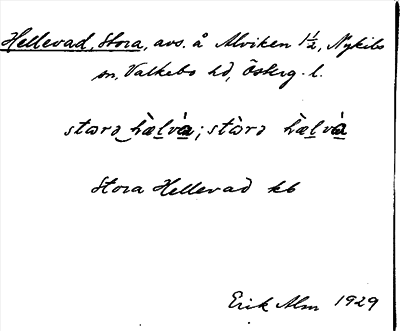 Hellevad, Stora, avs. å Alviken 1½, Nykils
sn, Valkebo hd, Österg. l.
storə hæ̀lvá; stòrə hæ̀lvá
Stora Hellevad kb
Erik Alm 1929